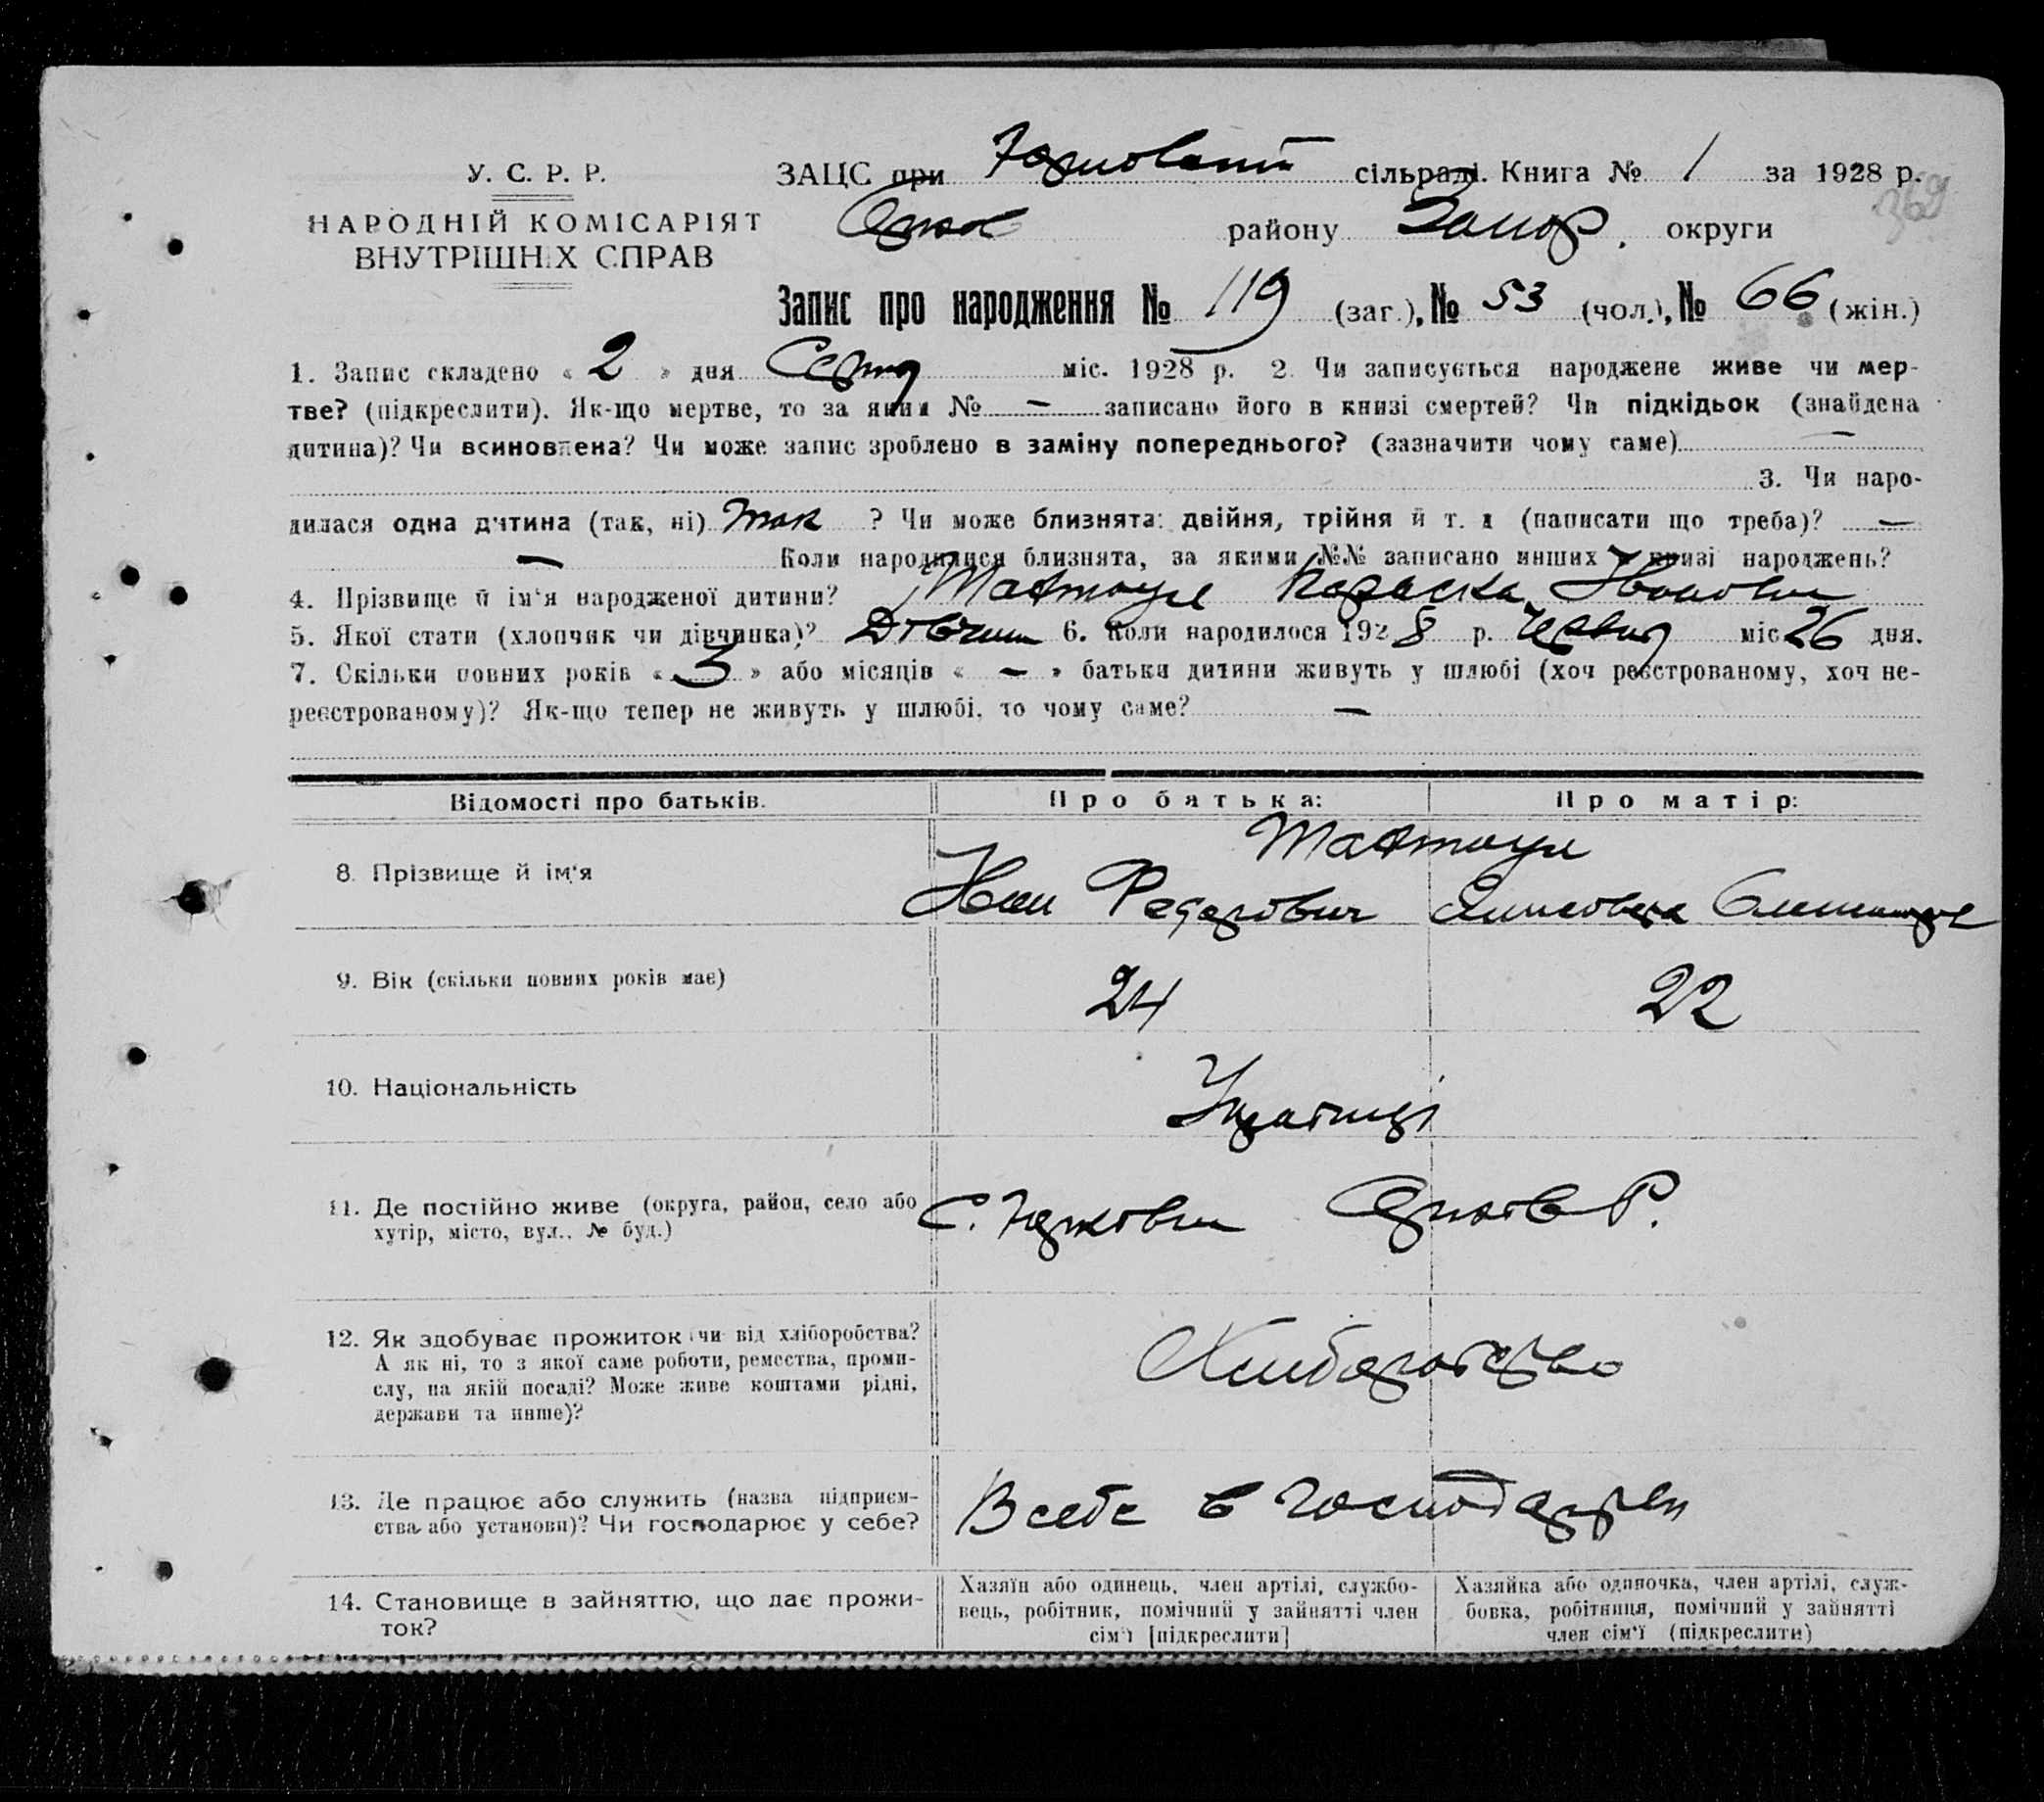 У. С. Р. Р.
НАРОДНІЙ КОМІСАРІЯТ
ВНУТРІШНІХ СПРАВ
ЗАЦС при сільраді. Книга № 1 за 1928 р.
369
району Запор. округи
Запис про народження № 119 (заг.), № 53 (чол.), № 66 (жін.)
1. Запис складено « 2 » дня Серпня міс. 1928 р. 2. Чи записується народжене живе чи мер-
тве? (підкреслити). Як-що мертве, то за яким № — записано його в книзі смертей? Чи підкідьок (знайдена
дитина)? Чи всиновлена? Чи може запис зроблено в заміну попереднього? (зазначити чому саме) —
3. Чи наро-
дилася одна дитина (так, ні) так ? Чи може близнята: двійня, трійня й т. д (написати що треба)? —
— Коли народилися близнята, за якими №№ записано инших у книзі народжень?
4. Прізвище й ім'я народженої дитини? Параска Ивановна
5. Якої стати (хлопчик чи дівчинка)? Дівчина 6. Коли народилося 1928 р. Червня міс 26 дня.
7. Скільки повних років « 3 » або місяців « — » батьки дитини живуть у шлюбі (хоч реєстрованому, хоч не-
реєстрованому)? Як-що тепер не живуть у шлюбі, то чому саме? —
Відомості про батьків. Про батька: Про матір:
8. Прізвище й ім'я
Иван Федорович
9. Вік (скільки повних років має) 24 22
10. Національність Українці
11. Де постійно живе (округа, район, село або
хутір, місто, вул., № буд.)
С. Р.
12. Як здобуває прожиток (чи від хліборобства?
А як ні, то з якої саме роботи, ремества, проми-
слу, на якій посаді? Може живе коштами рідні,
держави та инше)?
Хлиборобство
13. Де працює або служить (назва підприєм-
ства або установи)? Чи господарює у себе?
В себе в господарстві
14. Становище в зайняттю, що дає прожи-
ток?
Хазяїн або одинець, член артілі, службо-
вець, робітник, помічний у зайнятті член
сім'ї [підкреслити]
Хазяйка або одиночка, член артілі, служ-
бовка, робітниця, помічний у зайнятті
член сім'ї (підкреслити)